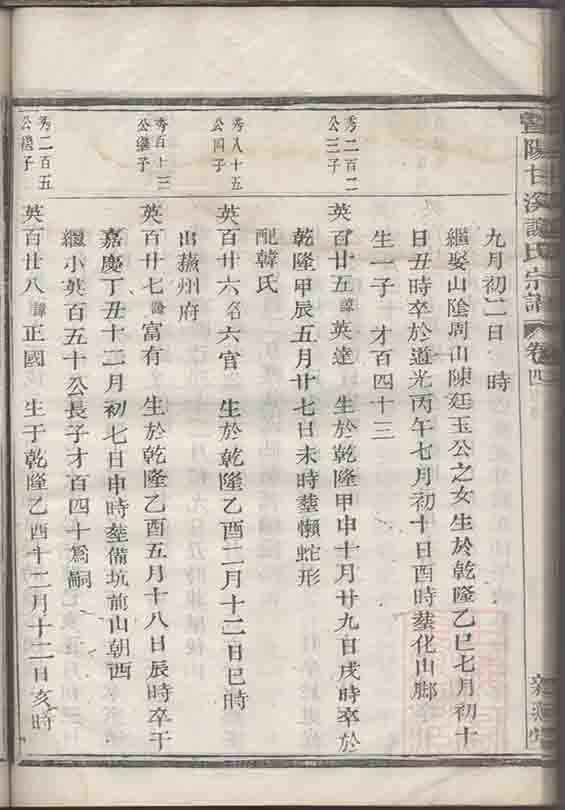 暨陽甘溪謝氏宗譜 卷四
九月初二日 時
繼娶山陰周山陳廷玉公之女生於乾隆乙巳七月初十
日丑時卒於道光丙午七月初十日酉時葬化山脚
生一子 才百四十三
秀二百二
公三子
英百廿五諱英達 生於乾隆甲申十月廿九日戌時卒於
乾隆甲辰五月廿七日未時葬懶蛇形
配韓氏
秀八十五
公四子
英百廿六名六官 生於乾隆乙酉二月十二日巳時
出蘇州府
秀百十三
公繼子
英百廿七諱富有 生於乾隆乙酉五月十八日辰時卒于
嘉慶丁丑十二月初七日申時葬備坑前山朝西
繼小英百五十公長子才百四十為嗣
秀二百五
公繼子
英百廿八諱正國 生于乾隆乙酉十二月十二日亥時